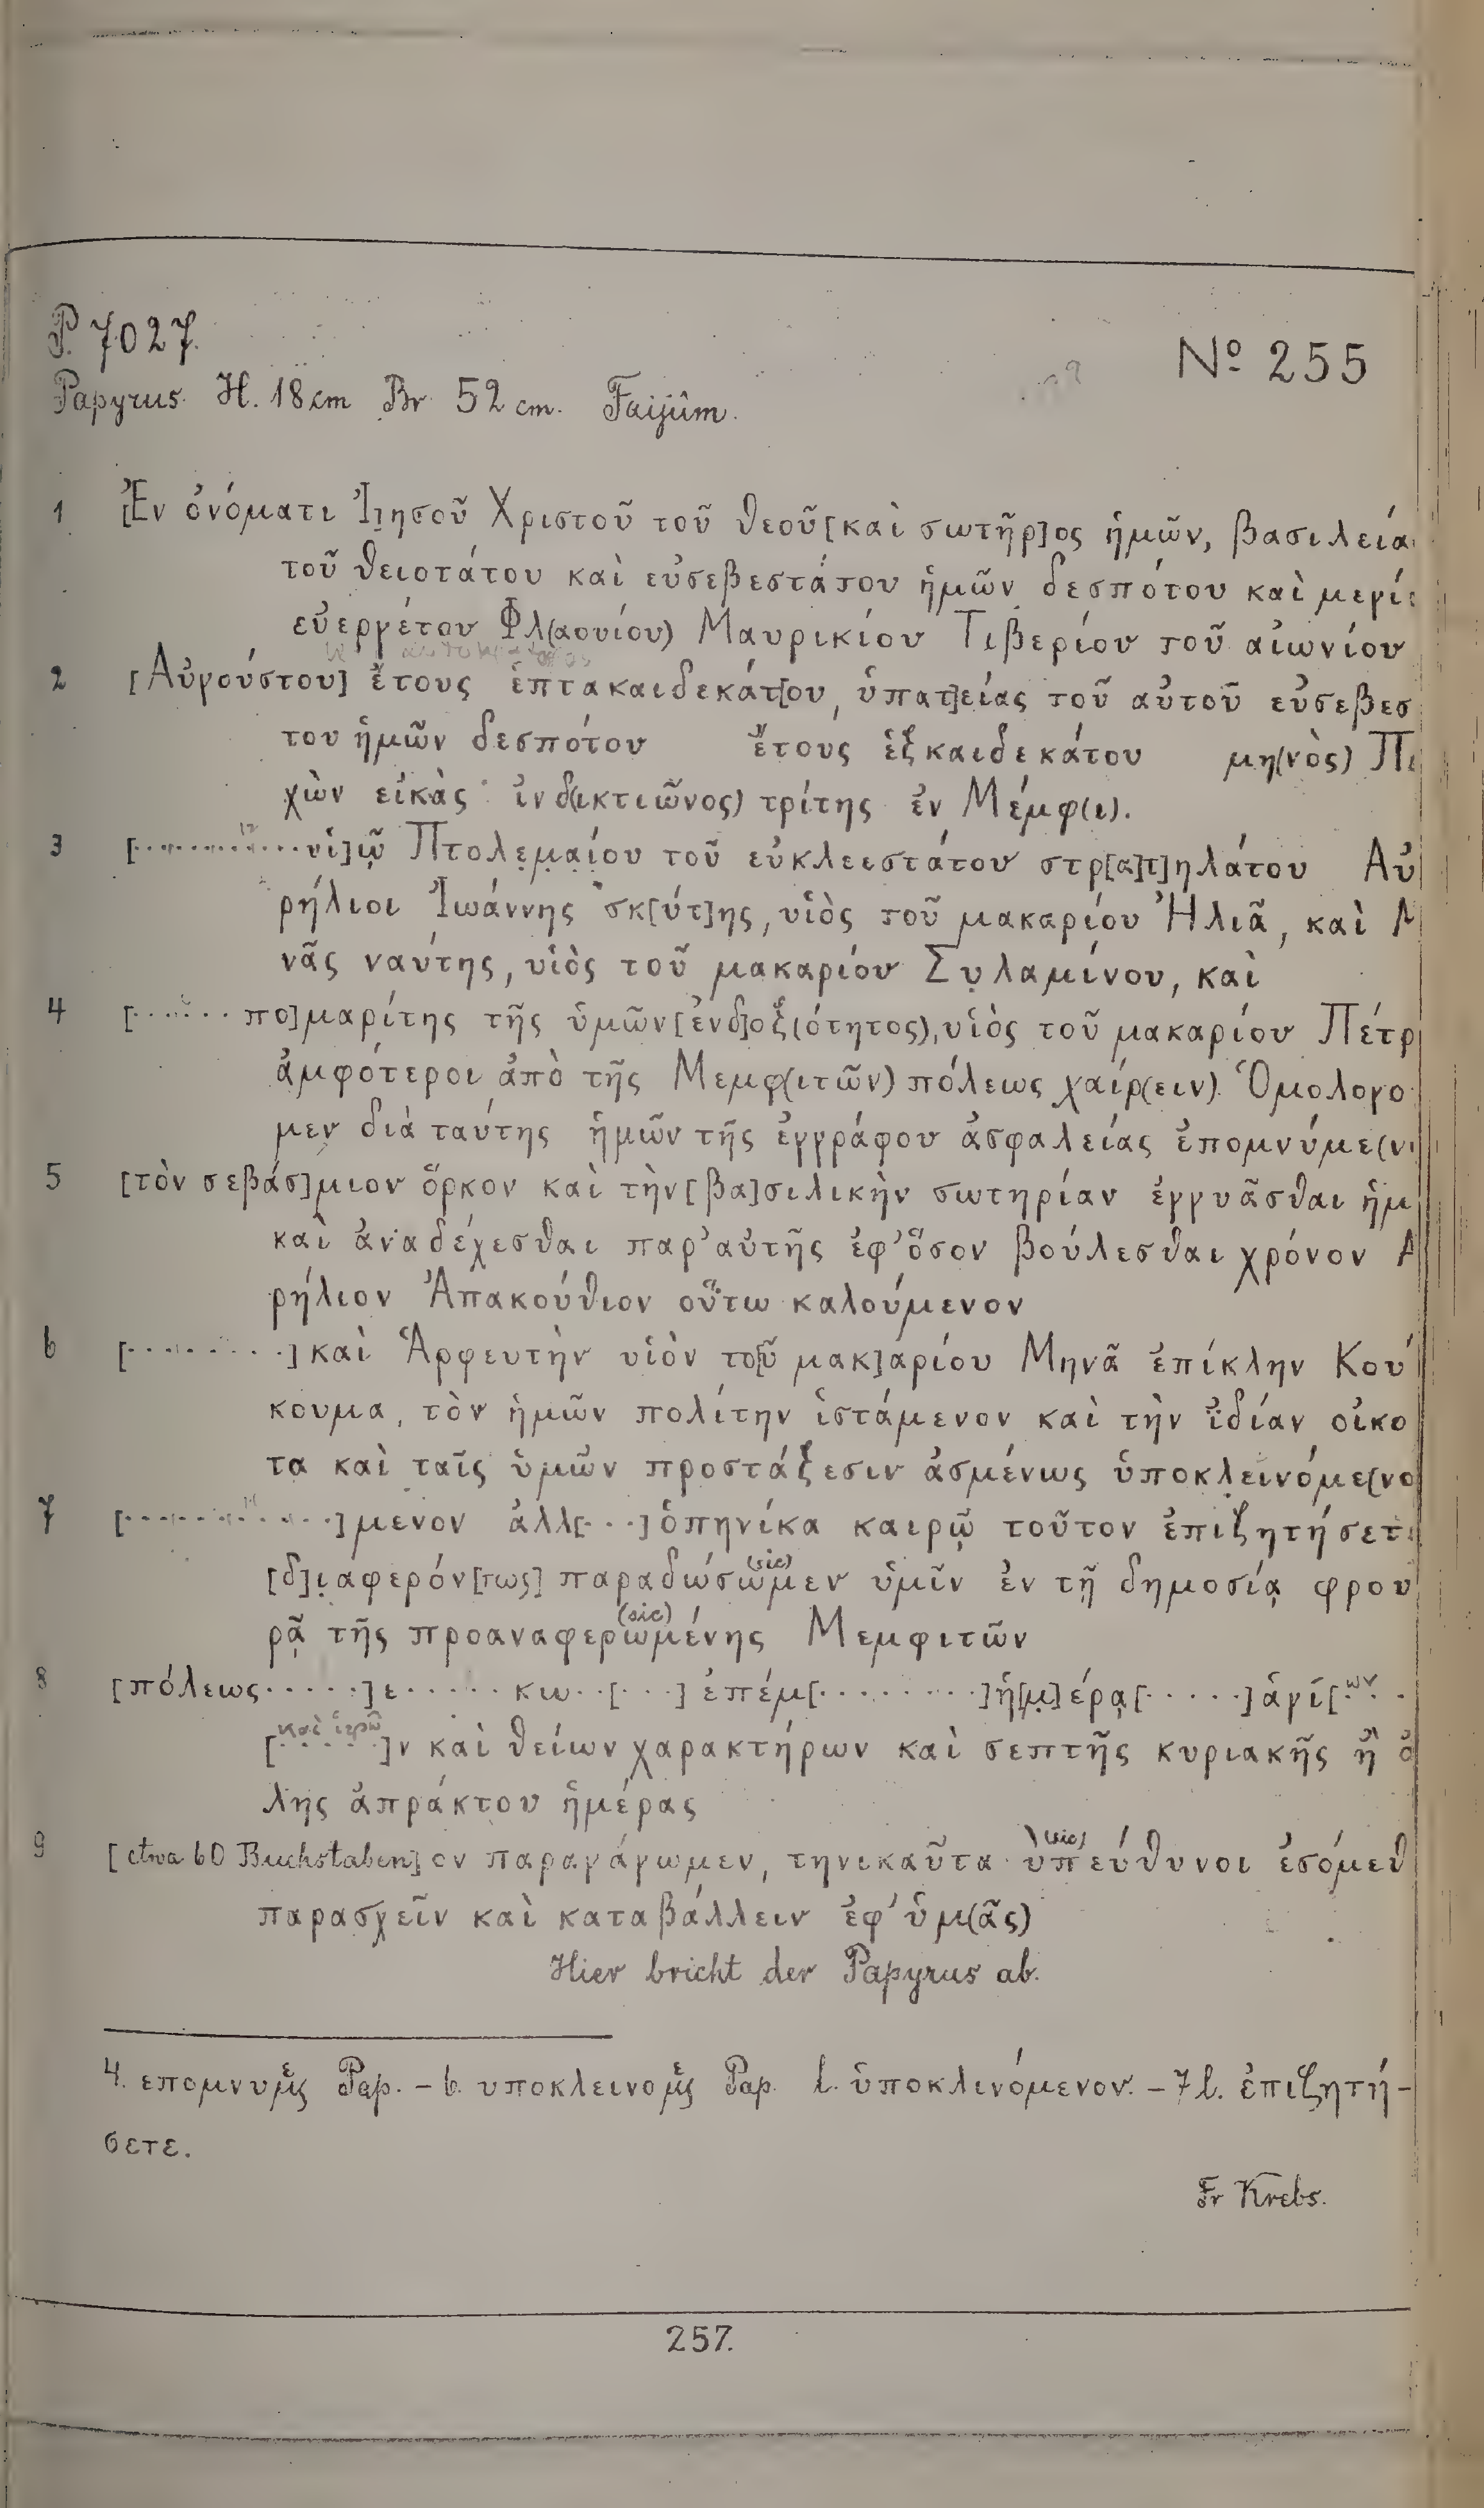 P. 7027.
Nº 255
Papyrus H. 18 cm Br 52 cm. Faijûm.
1 [Ἐν ὀνόματι Ἰ]ησοῦ Χριστοῦ τοῦ θεοῦ [καὶ σωτῆρ]ος ἡμῶν, βασιλεία
τοῦ θειοτάτου καὶ εὐσεβεστάτου ἡμῶν δεσπότου καὶ μεγί
εὐεργέτου Φλ(αουίου) Μαυρικίου Τιβερίου τοῦ αἰωνίου
2 [Αὐγούστου] ἔτους ἑπτακαιδεκάτ[ου, ὑπατ]είας τοῦ αὐτοῦ εὐσεβεσ
του ἡμῶν δεσπότου ἔτους ἑξκαιδεκάτου μη(νὸς) Π
χὼν εἰκὰς ἰνδ(ικτιῶνος) τρίτης ἐν Μέμφ(ι).
3 [............υἱ]ῷ Πτολεμαίου τοῦ εὐκλεεστάτου στρ[α]τ]ηλάτου Αὐ
ρήλιοι Ἰωάννης σκ[ύτ]ης, υἱὸς τοῦ μακαρίου Ἠλιᾶ, καὶ
νᾶς ναύτης, υἱὸς τοῦ μακαρίου Συλαμίνου, καὶ
4 [....... πο]μαρίτης τῆς ὑμῶν [ἐνδ]οξ(ότητος), υἱὸς τοῦ μακαρίου Πέτρ
ἀμφότεροι ἀπὸ τῆς Μεμφ(ιτῶν) πόλεως χαίρ(ειν). Ὁμολογο
μεν διὰ ταύτης ἡμῶν τῆς ἐγγράφου ἀσφαλείας ἐπομνύμε(ν
5 [τὸν σεβάσ]μιον ὅρκον καὶ τὴν [βα]σιλικὴν σωτηρίαν ἐγγυᾶσθαι ἡμ
καὶ ἀναδέχεσθαι παρ’ αὐτῆς ἐφ’ ὅσον βούλεσθαι χρόνον
ρήλιον Ἀπακούθιον οὕτω καλούμενον
6 [..........] καὶ Ἁρφευτὴν υἱὸν το[ῦ μακ]αρίου Μηνᾶ ἐπίκλην Κου
κουμα, τὸν ἡμῶν πολίτην ἱστάμενον καὶ τὴν ἰδίαν οἰκο
τα καὶ ταῖς ὑμῶν προστάξεσιν ἀσμένως ὑποκλεινόμε(νο
7 [.............]μενον ἀλλ[...] ὁπηνίκα καιρῷ τοῦτον ἐπιζητήσετ
[δ]ιαφερόν[τως] παραδώσωμεν (sic) ὑμῖν ἐν τῇ δημοσίᾳ φρου
ρᾷ τῆς προαναφερωμένης (sic) Μεμφιτῶν
8 [πόλεως.....]ε......κω..[...] ἐπέμ[.........]ἡ[μ]έρᾳ[.....] ἁγί[ων
[καὶ ἱερῶ]ν καὶ θείων χαρακτήρων καὶ σεπτῆς κυριακῆς ἢ ὁ
λης ἀπράκτου ἡμέρας
9 [etwa 60 Buchstaben]ον παραγάγωμεν, τηνικαῦτα ὑπεύθυνοι (sic) ἐσόμεθ
παρασχεῖν καὶ καταβάλλειν ἐφ’ ὑμ(ᾶς)
Hier bricht der Papyrus ab.
4. επομνυμες Pap. – 6. υποκλεινομες Pap. l. ὑποκλινόμενον. – 7 l. ἐπιζητή-
σετε.
Fr Krebs.
257.